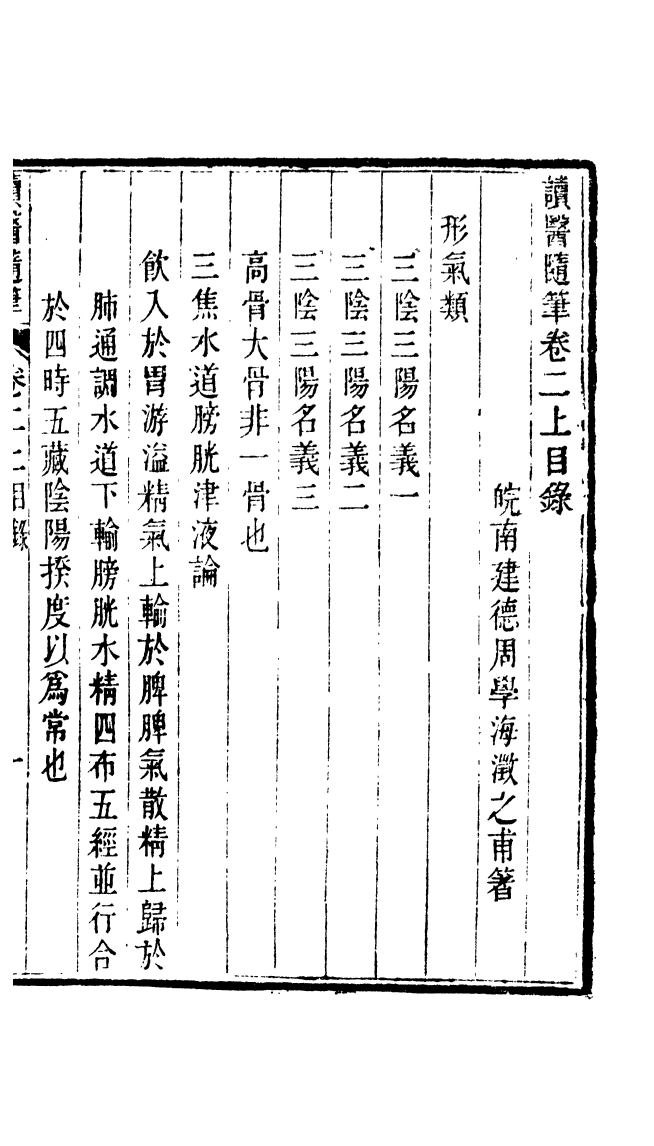 讀醫隨筆卷二上目錄
皖南建德周學海澂之甫箸
形氣類
三陰三陽名義一
三陰三陽名義二
三陰三陽名義三
高骨大骨非一骨也
三焦水道膀胱津液論
飲入於胃游溢精氣上輸於脾脾氣散精上歸於
肺通調水道下輸膀胱水精四布五經並行合
於四時五藏陰陽揆度以為常也
讀醫隨筆 卷二上目錄 一